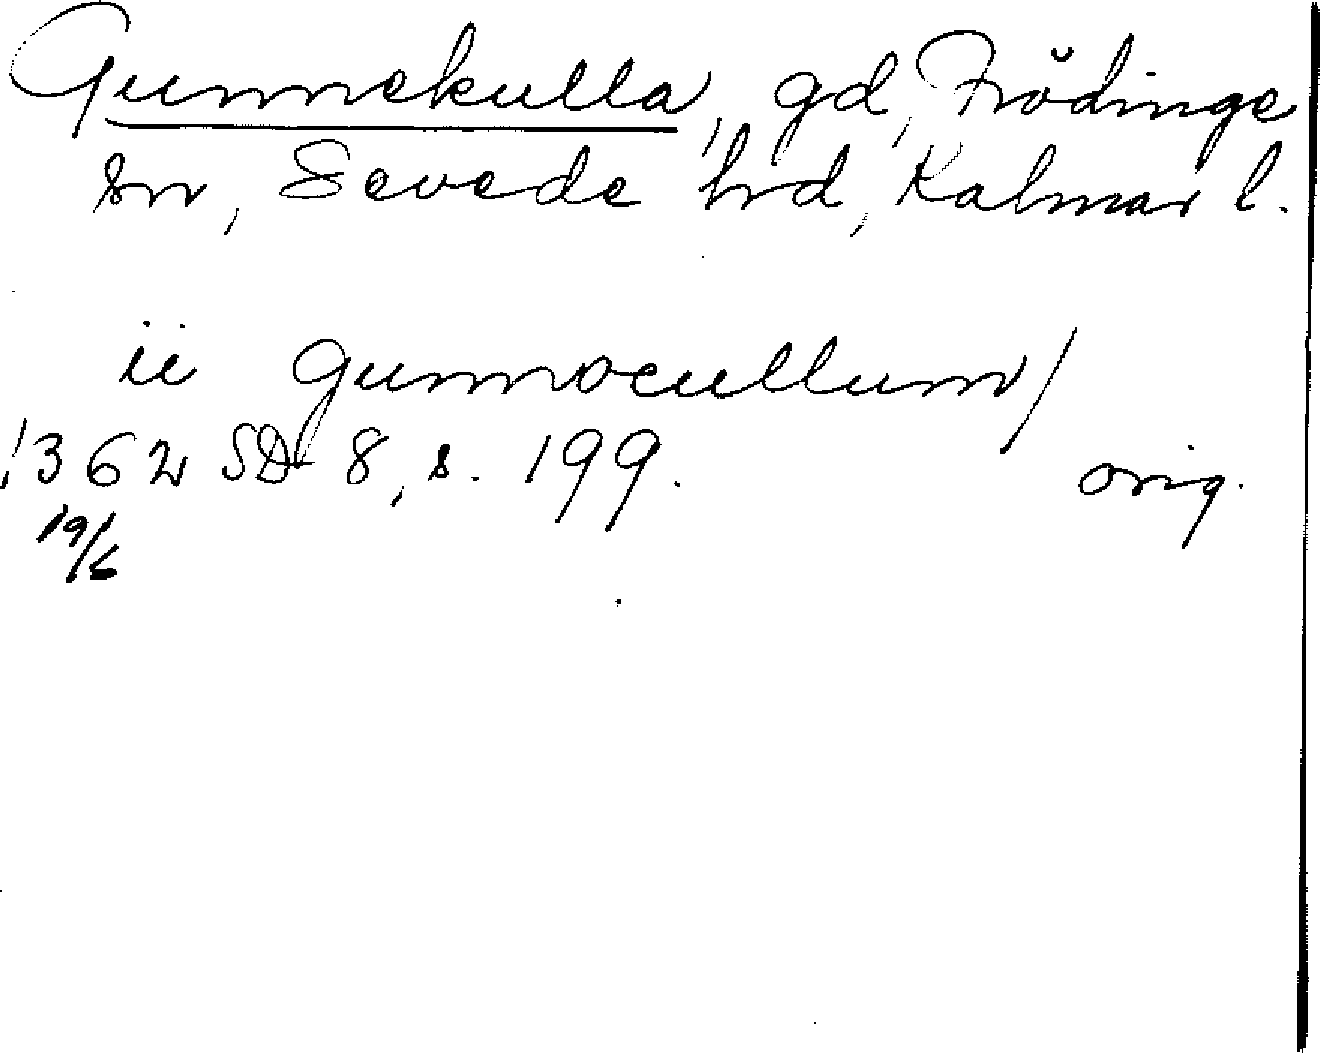 Gunnekulla, gd, Frödinge
sn, Sevede hrd, Kalmar l.
ii gunnocullum/
1362 SD 8, s. 199. orig.
19/6